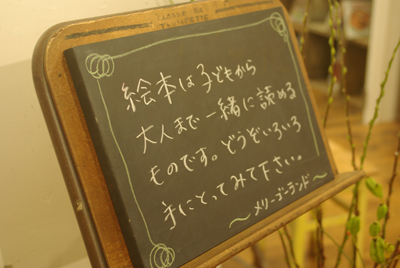 絵本は子どもから
大人まで一緒に読める
ものです。どうぞいろいろ
手にとってみて下さい。
〜メリーゴーランド〜